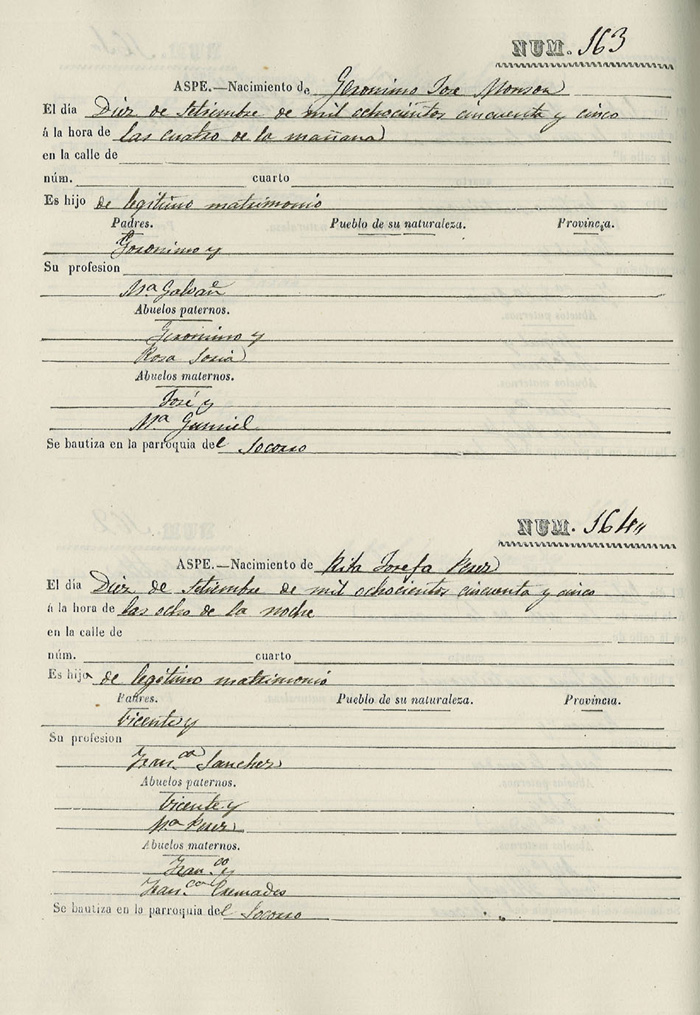 NUM. 163
ASPE.—Nacimiento de Geronimo José Monzon
El dia Diez de Setiembre de mil ochocientos cincuenta y cinco
á la hora de las cuatro de la mañana
en la calle de
núm. cuarto
Es hijo de legitimo matrimonio
Padres. Pueblo de su naturaleza. Provincia.
Geronimo y
Su profesion
Mª Galvañ
Abuelos paternos.
Geronimo y
Rosa Soria
Abuelos maternos.
José y
Mª Gumiel
Se bautiza en la parroquia del Socorro
NUM. 164
ASPE.—Nacimiento de Rita Josefa
El dia Diez de Setiembre de mil ochocientos cincuenta y cinco
á la hora de las ocho de la noche
en la calle de
núm. cuarto
Es hija de legitimo matrimonio
Padres. Pueblo de su naturaleza. Provincia.
Vicente y
Su profesion
Franca Sanchez
Abuelos paternos.
Vicente y
Mª
Abuelos maternos.
Franco y
Franca Cremades
Se bautiza en la parroquia del Socorro